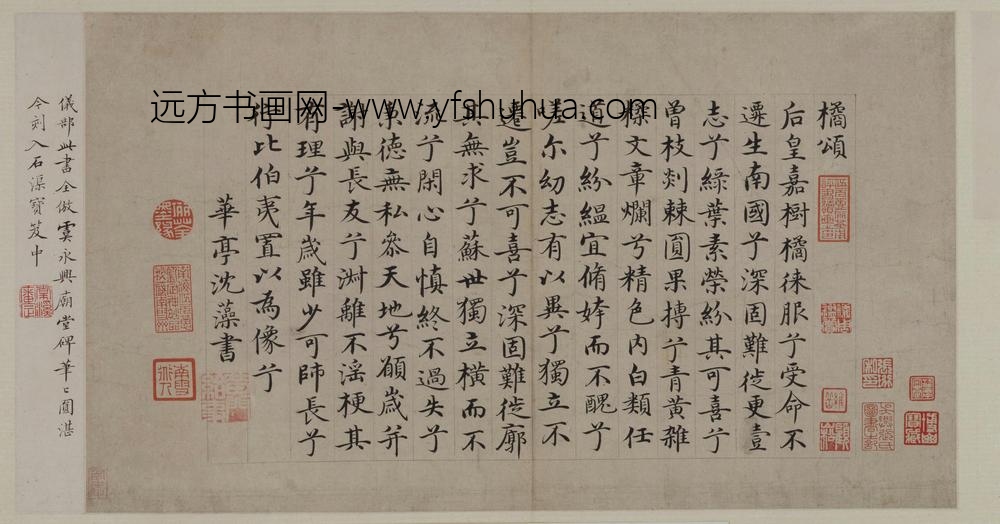 橘頌
后皇嘉樹橘徠服兮受命不
遷生南國兮深固難徙更壹
志兮綠葉素榮紛其可喜兮
曾枝剡棘圓果摶兮青黃雜
糅文章爛兮精色内白類任
道兮紛緼宜脩姱而不醜兮
嗟尔幼志有以異兮獨立不
遷豈不可喜兮深固難徙廓
其無求兮蘇世獨立橫而不
流兮閉心自慎終不過失兮
秉德無私參天地兮願歲并
謝與長友兮淑離不淫梗其
有理兮年歲雖少可師長兮
行比伯夷置以為像兮
華亭沈藻書
儀部此書全倣虞永興廟堂碑筆〻圓湛
今刻入石渠寶笈中
远方书画网-www.yfshuhua.com